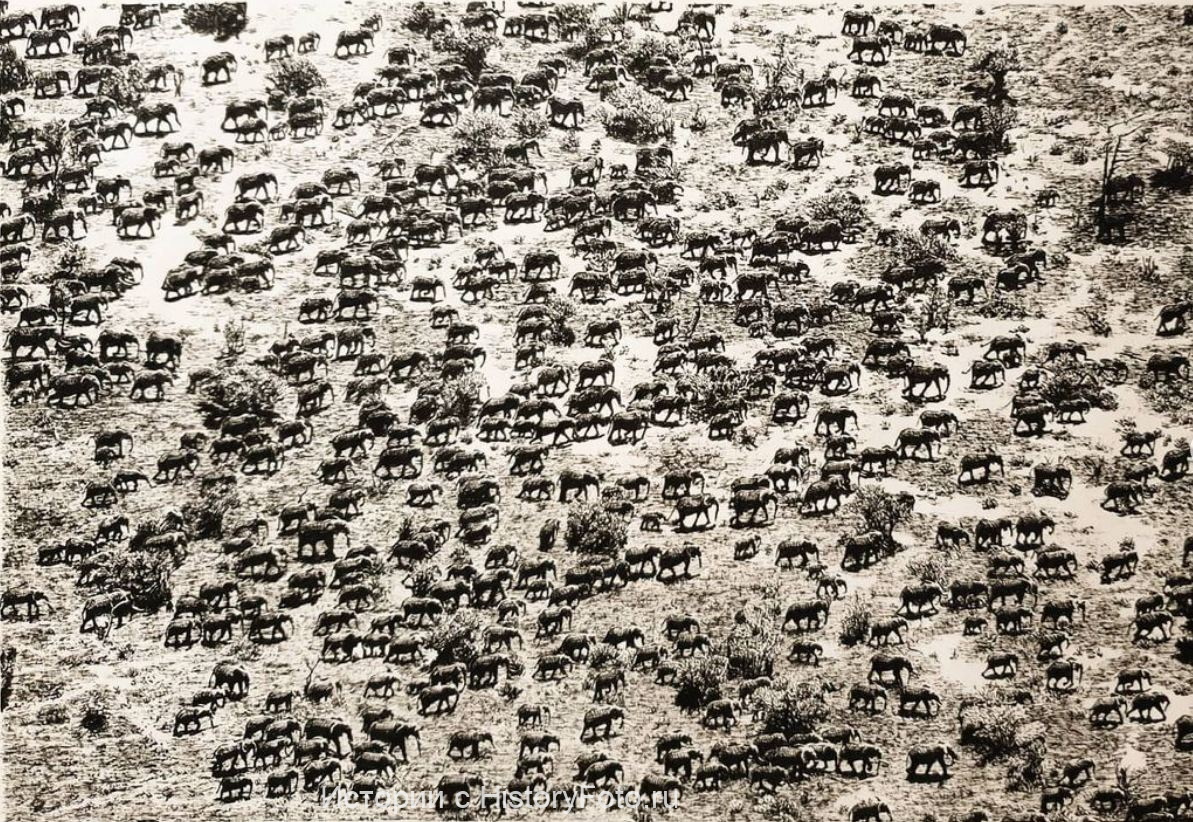 Истории с HistoryFoto.ru